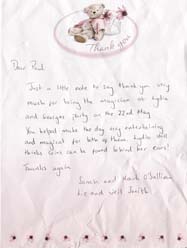 Thank you
Dear Paul,
Just a little note to say thank you very
much for being the magician at Lydia
and George's party on the 22nd May.
You helped make the day very entertaining
and magical for both of them. Lydia still
thinks coins can be found behind her ears!
Thanks again
Sarah and Mark O'Sullivan